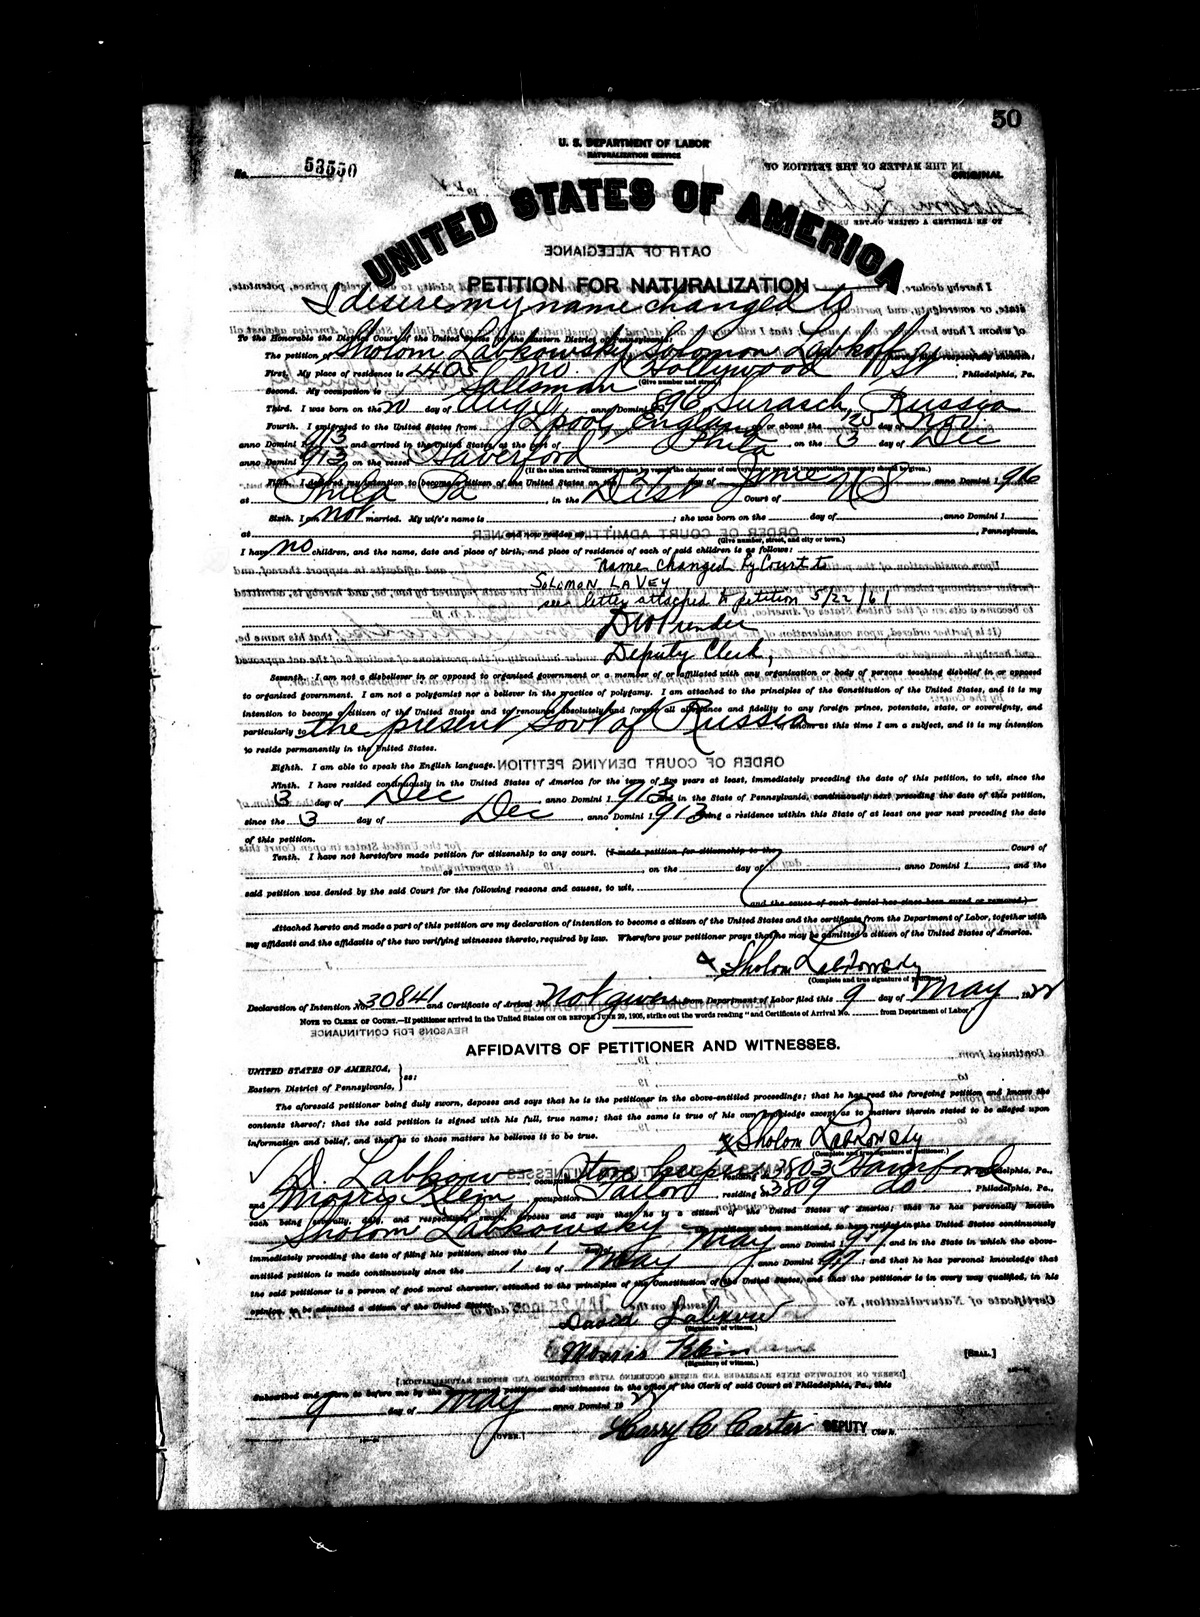 50
U. S. DEPARTMENT OF LABOR
NATURALIZATION SERVICE
No. 53550
ORIGINAL
UNITED STATES OF AMERICA
PETITION FOR NATURALIZATION
I desire my name changed to
To the Honorable the District Court of the United States for the Eastern District of Pennsylvania:
The petition of Sholom Labkowsky Solomon Labkoff
First. My place of residence is 2405 No. Hollywood St, Philadelphia, Pa.
(Give number and street.)
Second. My occupation is Salesman
Third. I was born on the 20 day of Aug, anno Domini 1 896 Surasch, Russia
Fourth. I emigrated to the United States from L'pool, England on or about the 25 day of Nov
anno Domini 1 913 and arrived in the United States, at the port of Phila, on the 3 day of Dec
anno Domini 1 913 on the vessel Haverford
(If the alien arrived otherwise than by vessel, the character of conveyance or name of transportation company should be given.)
Fifth. I declared my intention to become a citizen of the United States on the 12 day of June anno Domini 1 916
at Phila Pa in the Dist Court of US
Sixth. I am not married. My wife's name is ; she was born on the day of, anno Domini 1
at and now resides at, Pennsylvania.
(Give number, street, and city or town.)
I have no children, and the name, date and place of birth, and place of residence of each of said children is as follows:
name changed by Court to
SOLOMAN LAVEY
see letter attached to petition 5/22/61
Deputy Clerk,
Seventh. I am not a disbeliever in or opposed to organized government or a member of or affiliated with any organization or body of persons teaching disbelief in or opposed
to organized government. I am not a polygamist nor a believer in the practice of polygamy. I am attached to the principles of the Constitution of the United States, and it is my
intention to become a citizen of the United States and to renounce absolutely and forever all allegiance and fidelity to any foreign prince, potentate, state, or sovereignty, and
particularly to the present Govt of Russia of whom at this time I am a subject, and it is my intention
to reside permanently in the United States.
Eighth. I am able to speak the English language.
Ninth. I have resided continuously in the United States of America for the term of five years at least, immediately preceding the date of this petition, to wit, since the
3 day of Dec, anno Domini 1 913 and in the State of Pennsylvania, continuously next preceding the date of this petition,
since the 3 day of Dec, anno Domini 1 913 being a residence within this State of at least one year next preceding the date
of this petition.
Tenth. I have not heretofore made petition for citizenship to any court. (I made petition for citizenship to the Court of
at, on the day of, anno Domini 1, and the
said petition was denied by the said Court for the following reasons and causes, to wit,
and the cause of such denial has since been cured or removed.)
Attached hereto and made a part of this petition are my declaration of intention to become a citizen of the United States and the certificate from the Department of Labor, together with
my affidavit and the affidavits of the two verifying witnesses thereto, required by law. Wherefore your petitioner prays that he may be admitted a citizen of the United States of America.
x Sholom Labkowsky
(Complete and true signature of petitioner.)
Declaration of Intention No. 30841 and Certificate of Arrival No. Not given from Department of Labor filed this 9 day of May, 1922
NOTE TO CLERK OF COURT.—If petitioner arrived in the United States ON OR BEFORE JUNE 29, 1906, strike out the words reading "and Certificate of Arrival No. from Department of Labor."
AFFIDAVITS OF PETITIONER AND WITNESSES.
UNITED STATES OF AMERICA,
Eastern District of Pennsylvania, } ss:
The aforesaid petitioner being duly sworn, deposes and says that he is the petitioner in the above-entitled proceedings; that he has read the foregoing petition and knows the
contents thereof; that the said petition is signed with his full, true name; that the same is true of his own knowledge except as to matters therein stated to be alleged upon
information and belief, and that as to those matters he believes it to be true.
x Sholom Labkowsky
(Complete and true signature of petitioner.)
D. Labkow, occupation Store keeper, residing at 3803 Haverford Philadelphia, Pa.,
and Morris Klein, occupation Tailor, residing at 3809 do Philadelphia, Pa.,
each being severally, duly, and respectively sworn, deposes and says that he is a citizen of the United States of America; that he has personally known
Sholom Labkowsky petitioner above mentioned, to have resided in the United States continuously
immediately preceding the date of filing his petition, since the 1 day of May, anno Domini 1 917, and in the State in which the above-
entitled petition is made continuously since the 1 day of May, anno Domini 1 917; and that he has personal knowledge that
the said petitioner is a person of good moral character, attached to the principles of the Constitution of the United States, and that the petitioner is in every way qualified, in his
opinion, to be admitted a citizen of the United States.
David Labkow
(Signature of witness.)
Morris Klein
(Signature of witness.)
[SEAL.]
Subscribed and sworn to before me by the above-named petitioner and witnesses in the office of the Clerk of said Court at Philadelphia, Pa., this
9 day of May, anno Domini 19 22
Harry C Carter DEPUTY Clerk.
[OVER.]